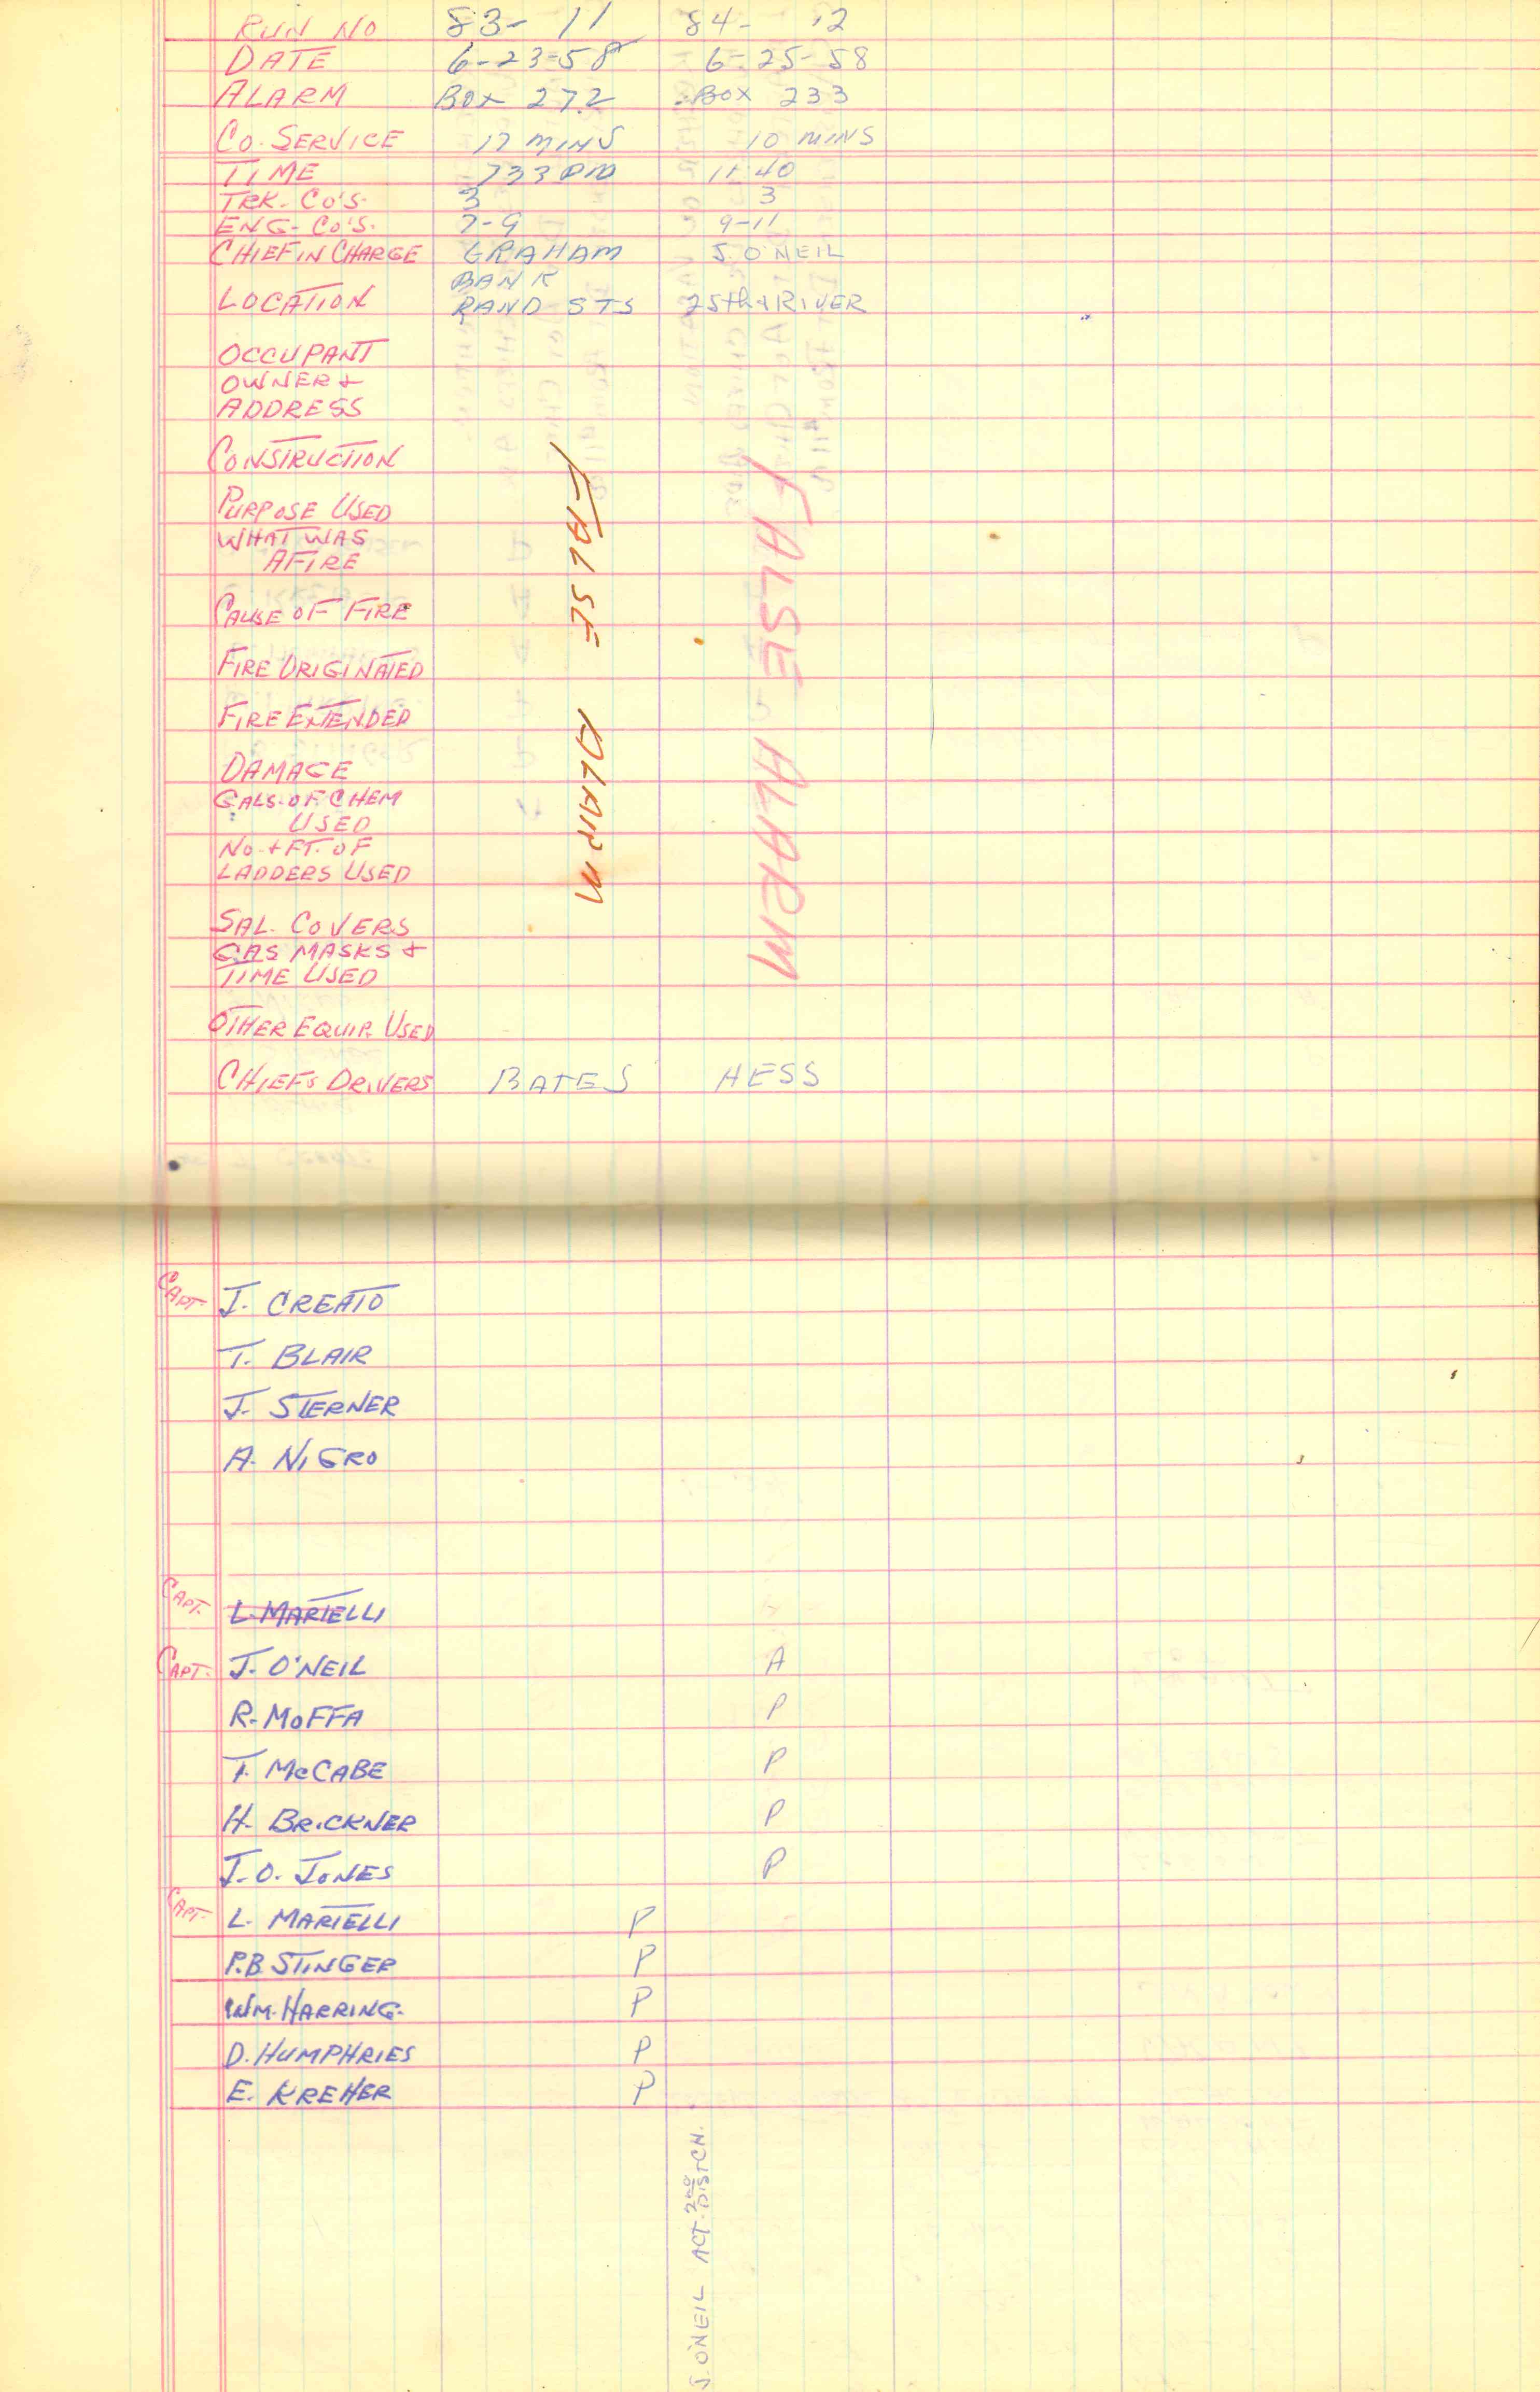 RUN NO 83- 11 84- 12
DATE 6-23-58 6-25-58
ALARM BOX 272 BOX 233
CO. SERVICE 17 MINS 10 MINS
TIME 733 PM 11:40
TRK. CO'S. 3 3
ENG- CO'S. 7-9 9-11
CHIEF IN CHARGE GRAHAM J. O'NEIL
BANK
LOCATION RAND STS 25th & RIVER
OCCUPANT
OWNER &
ADDRESS
CONSTRUCTION
PURPOSE USED
WHAT WAS
AFIRE
CAUSE OF FIRE
FIRE ORIGINATED
FIRE EXTENDED
DAMAGE
GALS. OF CHEM
USED
NO. + FT. OF
LADDERS USED
SAL. COVERS
GAS MASKS &
TIME USED
OTHER EQUIP. USED
FALSE ALARM
FALSE ALARM
CHIEFS DRIVERS BATES HESS
CAPT. J. CREATO
T. BLAIR
J. STERNER
A. NIGRO
CAPT. L. MARTELLI
CAPT. J. O'NEIL A
R. MOFFA P
T. McCABE P
H. BRICKNER P
J.O. JONES P
CAPT. L. MARTELLI P
P.B. STINGER P
WM. HARRING. P
D. HUMPHRIES P
E. KREHER P
J. O'NEIL ACT. 2ND DIST CH.